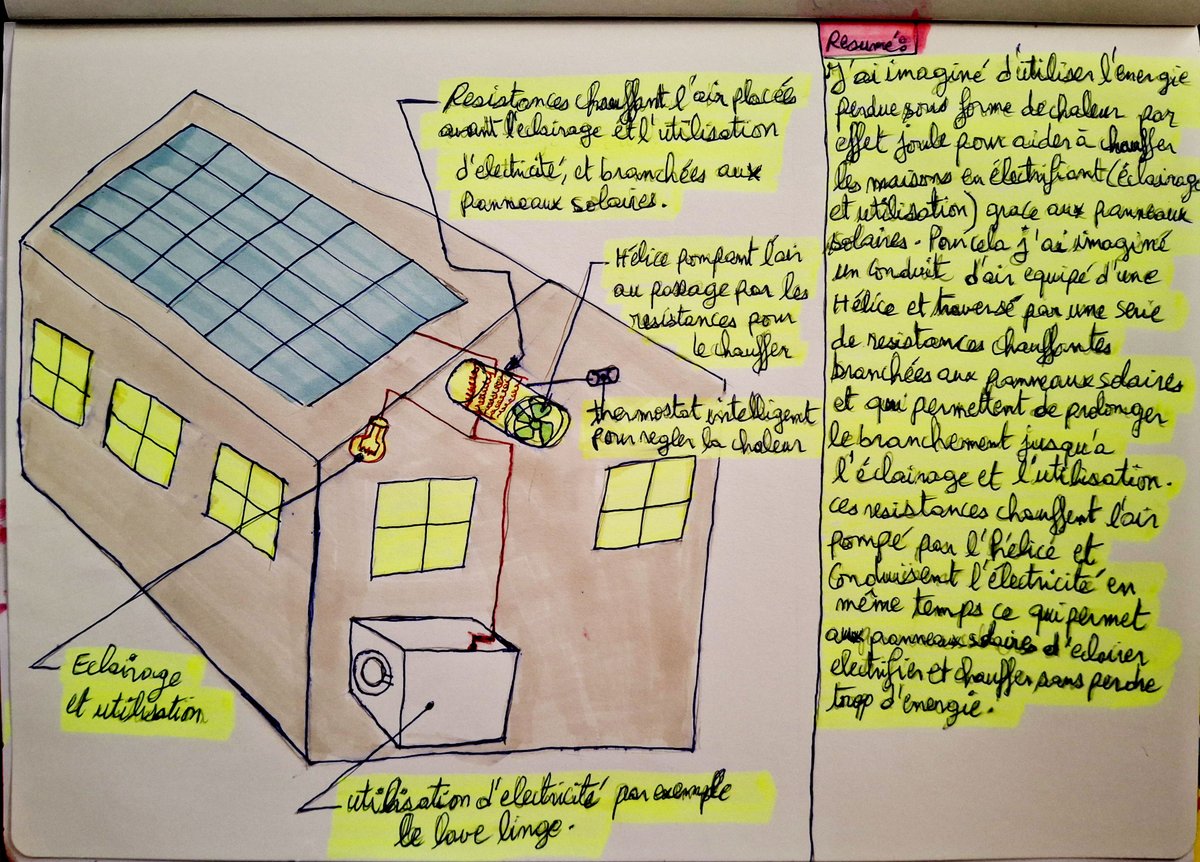 Resistances chauffant l'air placées
avant l'eclairage et l'utilisation
d'electricité, et branchées aux
panneaux solaires.
Hélice pompant l'air
au passage par les
resistances pour
le chauffer
thermostat intelligent
pour regler la chaleur
Eclairage
et utilisation
utilisation d'electricité par exemple
le lave linge.
Resumé:
J'ai imaginé d'utiliser l'energie
perdue sous forme de chaleur par
effet joule pour aider à chauffer
les maisons en électrifiant (éclairage
et utilisation) grace aux panneaux
solaires. Pour cela j'ai imaginé
un conduit d'air equipé d'une
Hélice et traversé par une serie
de resistances chauffantes
branchées aux panneaux solaires
et qui permettent de prolonger
le branchement jusqu'à
l'éclairage et l'utilisation.
ces resistances chauffent l'air
pompé par l'hélice et
Conduisent l'électricité en
même temps ce qui permet
aux panneaux solaires d'eclairer
electrifier et chauffer sans perdre
trop d'energie.